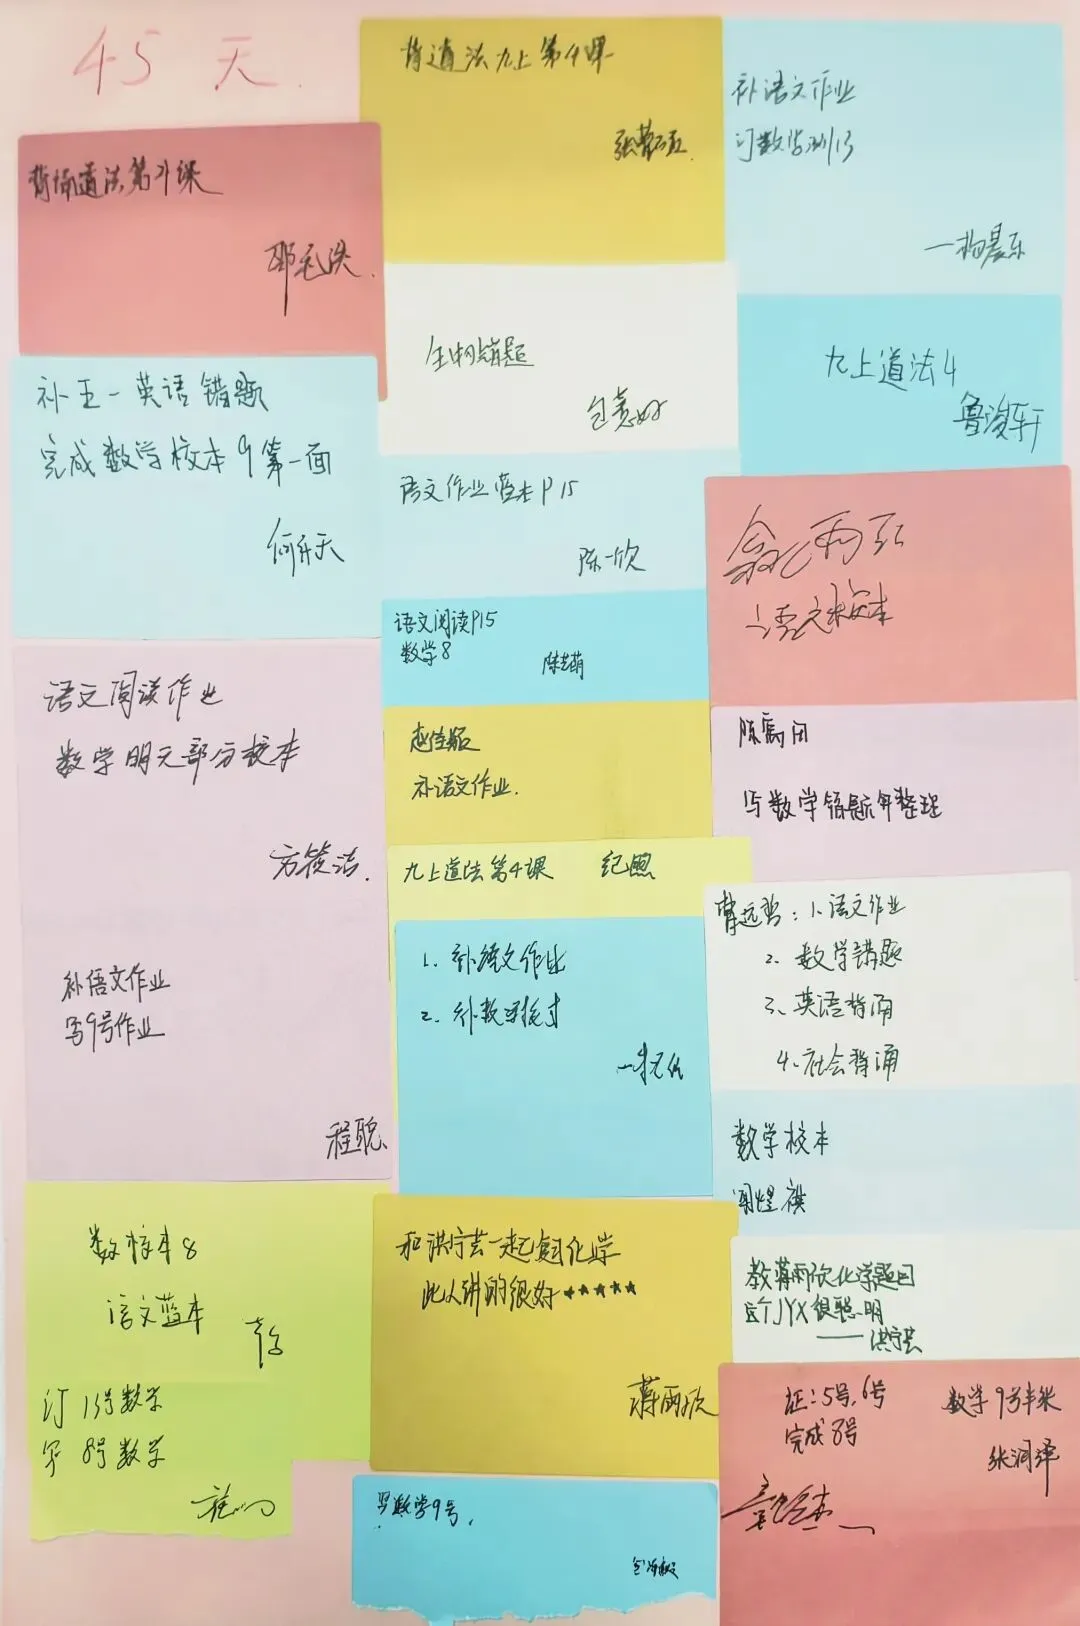 45天
背道法九上第4课
补语文作业
订数学测13
背诵道法第4课
生物错题
九上道法4
鲁浚轩
补五一英语错题
完成数学校本9第一面
何乐天
语文作业蓝本P15
陈一欣
语文校本
语文阅读P15
数学8
陈艺萌
语文阅读作业
数学明元部分校本
补语文作业.
写数学错题并整理
九上道法第4课
1、补语文作业
2、补数学校本
1、语文作业
2、数学错题
3、英语背诵
4、社会背诵
补语文作业
写9号作业
程聪
数学校本
数校本8
语文蓝本
和洪宁芸一起复习化学
此人讲的很好★★★★★
蒋雨欣
教蒋雨欣化学题目
这个JYX很聪明
——洪宁芸
订13号数学
写8号数学
订:5号,6号
完成8号
数学9号半张
张润泽
写数学9号.